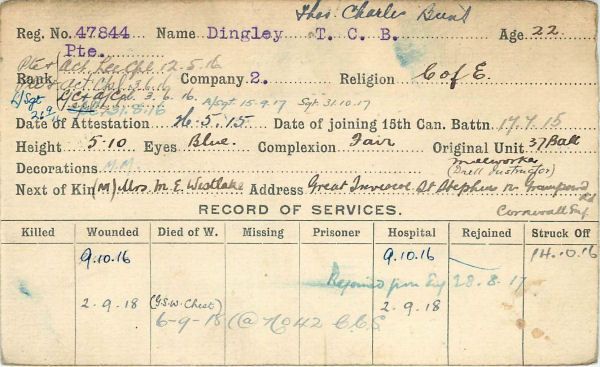 Thos. Charles Bunt
Reg. No. 47844 Name Dingley T. C. B. Age 22.
Pte.
Pte + Act. Lce Cpl 12.5.16
Rank Company 2. Religion C of E.
3.6.16 A/Sgt. 15.9.17 Sgt. 31.10.17
L/Sgt
Date of Attestation 26.5.15 Date of joining 15th Can. Battn. 17.7.15
Height 5-10 Eyes Blue. Complexion Fair Original Unit 37 Batt
Decorations M.M. Millworker
(Drill Instructor)
Next of Kin (M) Mrs. M. E. Westlake Address Great St Stephen n. Grampound Rd
Cornwall Eng
RECORD OF SERVICES.
Killed Wounded Died of W. Missing Prisoner Hospital Rejoined Struck Off
9.10.16 9.10.16 14.10.16
Rejoined from Eng 28.8.17
2.9.18 (G.S.W. Chest) 2.9.18
6-9-18 (@ No 42 C.C.S.